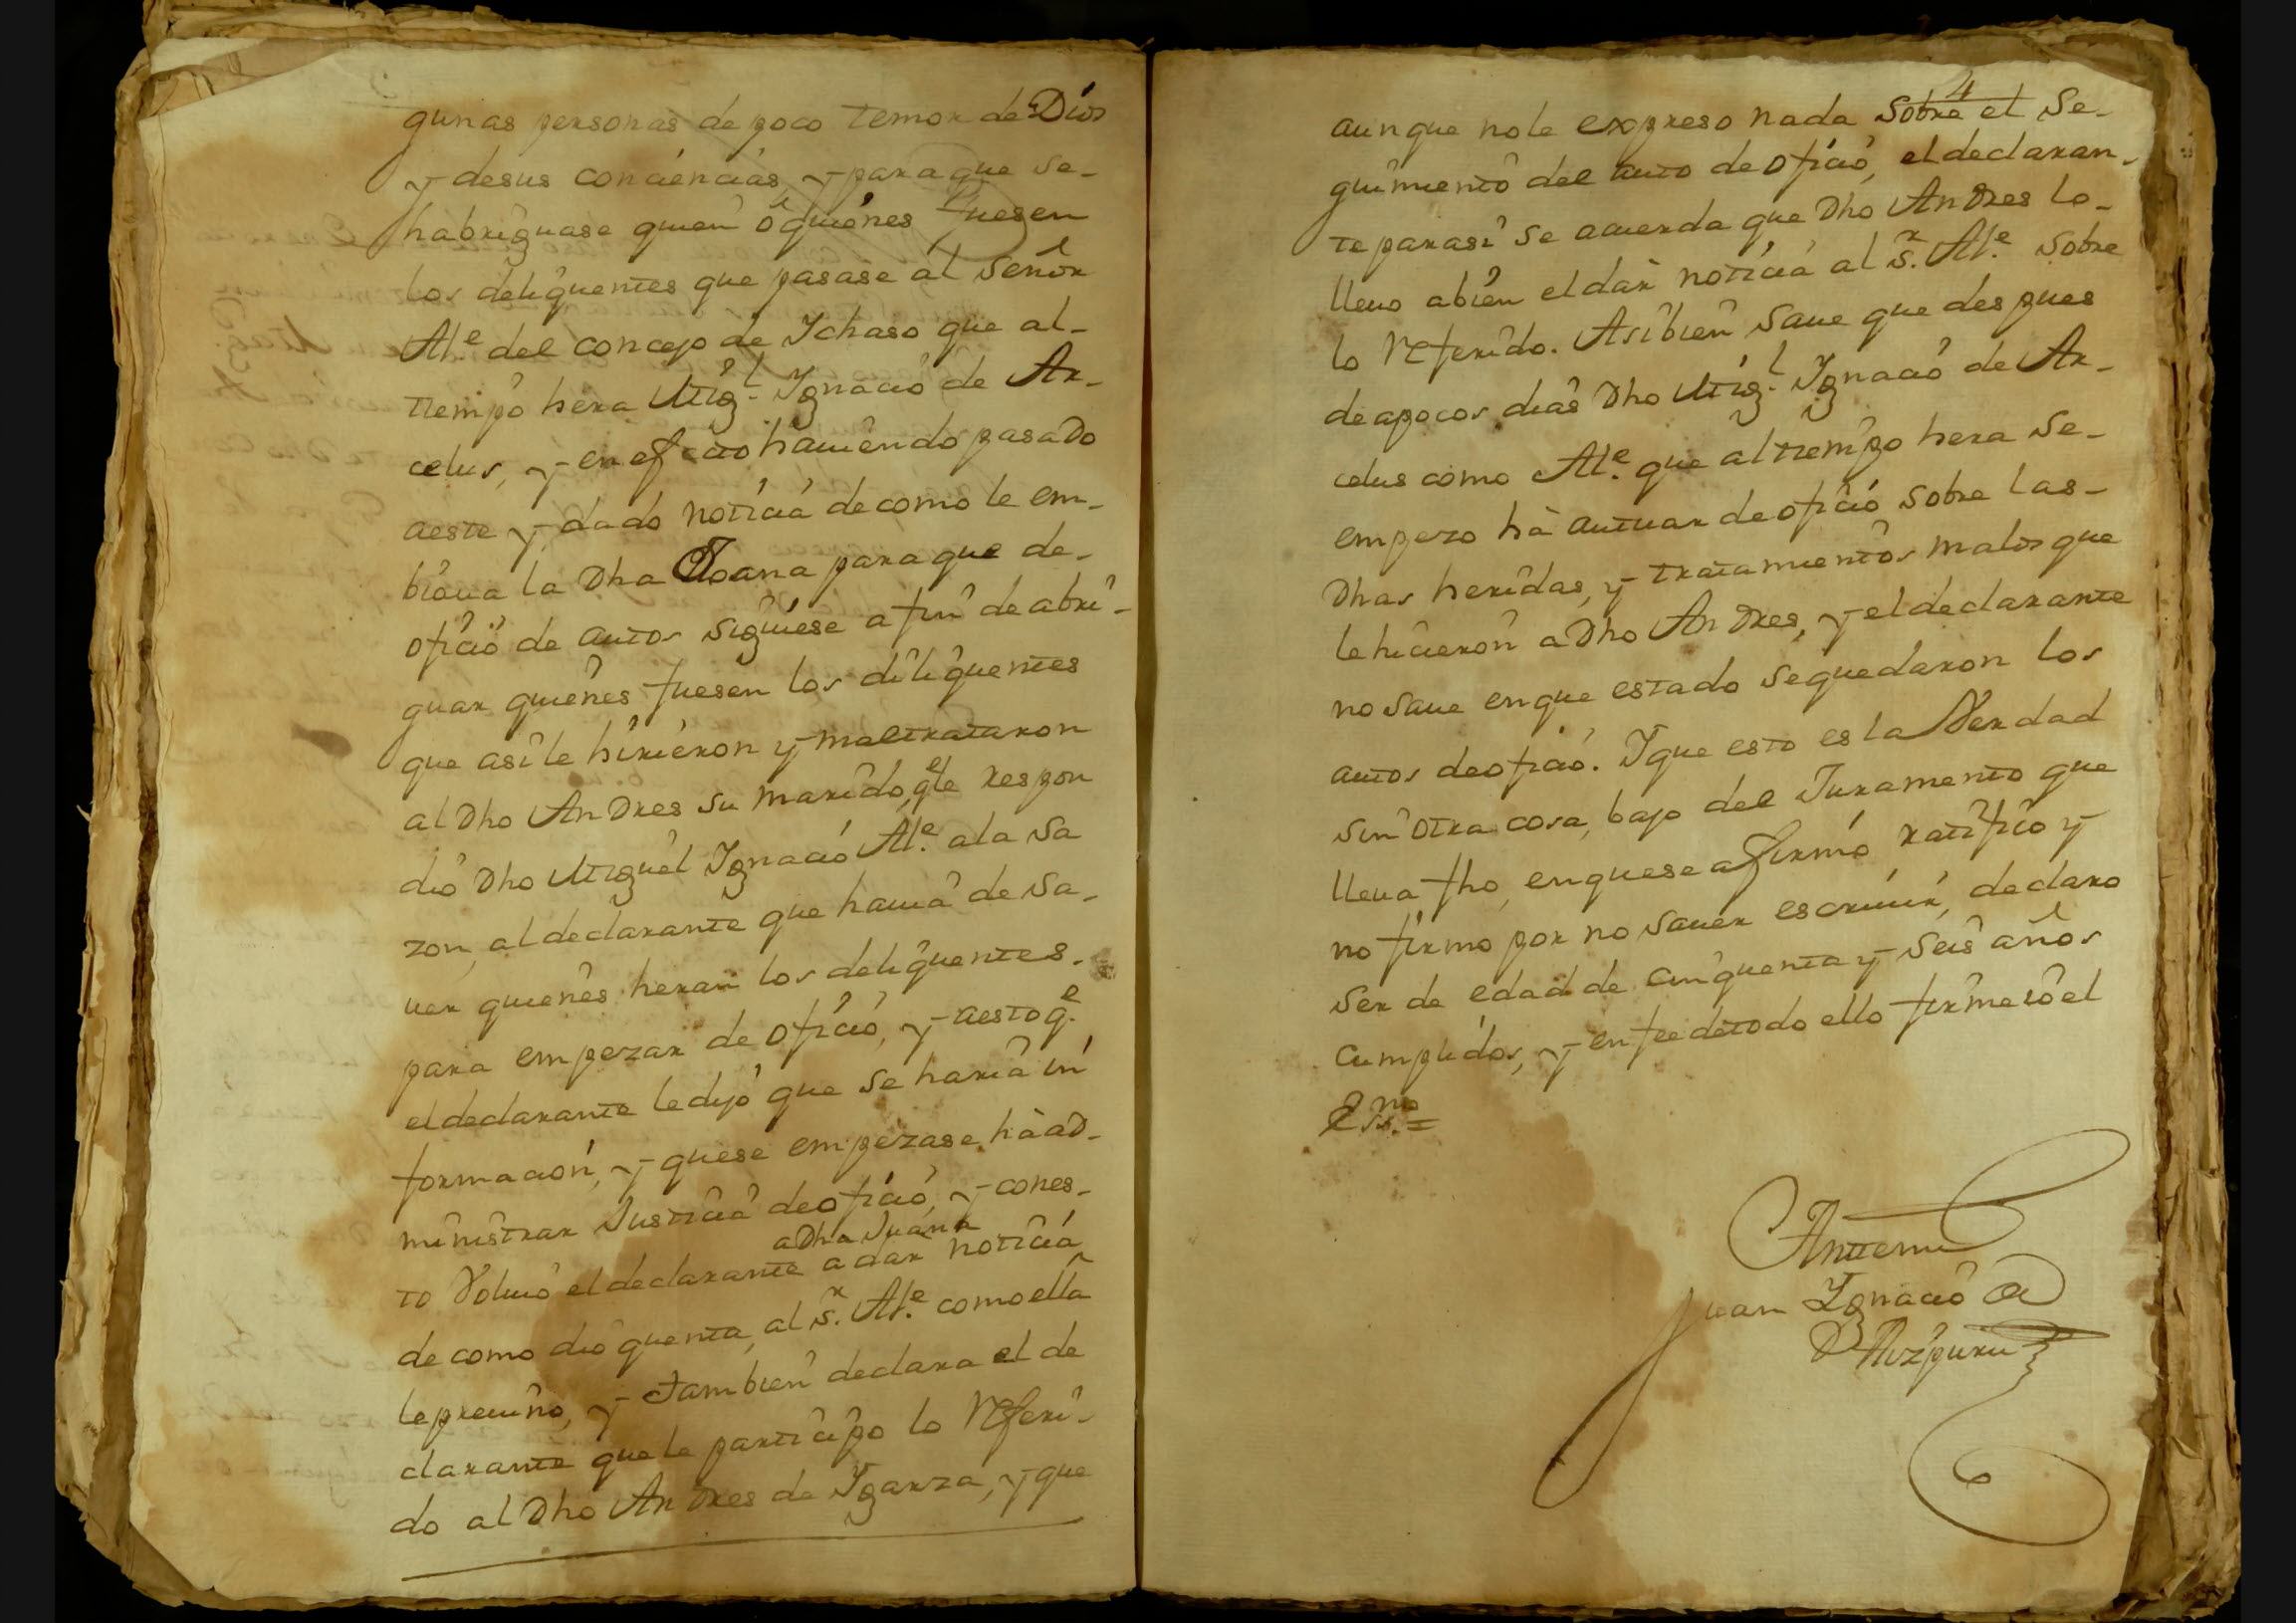 gunas personas de poco temor de Dios
y desus conciencias y para que se-
habriguase quien ô quienes fuesen
los deliquentes que pasase al señor
Al.e del concejo de Ychaso que al-
tiempo hera Mig.l Ygnacio de Ar-
celus, y en efecto haviendo pasado
aeste y dado noticia de como le em-
biava la Dha Joana para que de-
oficio de autos siguiese a fin de abri-
guar quienes fuesen los deliquentes
que asile hirieron y maltrataron
al Dho Andres su marido, q.e le respon
dio Dho Miguel Ygnacio Al.e ala sa
zon, al declarante que havia de sa-
ver quienes heran los deliquentes.
para empezar de oficio, y aesto q.e
el declarante ledijo que se haria in
formacion, y quese empezase hà ad-
ministrar Justicia deoficio, y cones-
a Dha Juana
to Volvio el declarante a dar noticia
de como dio quenta, al S.r Al.e como ella
leprevino, y tambien declara el de
clarante que le participo lo referi-
do al Dho Andres de Ygarza, y que
4
aunque nole expreso nada sobre el se-
guimiento del auto de oficio, el declaran-
te parasi se acuerda que Dho Andres lo-
llevo abien el dar noticia al S.r Al.e sobre
lo referido. Asibien save que despues
de apocos dias Dho Mig.l Ygnacio de Ar-
celus como Al.e que altiempo hera se-
empezo hà autuar de oficio sobre las-
Dhas heridas, y tratamientos malos que
le hicieron a Dho Andres, y el declarante
no save enque estado sequedaron los
autos deoficio. Yque esto es la Verdad
sin otra cosa, bajo del Juramento que
lleva fho, enquese afirmó ratifico y
no firmo por no saver escrivir, declaro
ser de edad de cinquenta y seis años
cumplidos, y en fee detodo ello firme io el
Ess.no =
Antemi
Juan Ygnacio de
Aizpuru